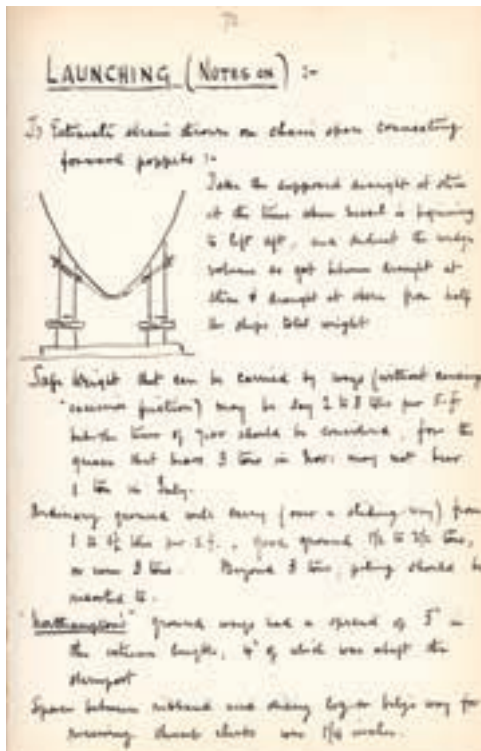 LAUNCHING (NOTES ON) :-
To Estimate strain thrown on chain spans connecting
forward poppets :-
Take the supposed draught at stem
at the time when vessel is beginning
to lift aft, and deduct the wedge
volume as got between draught at
stem & draught at stern from half
the ships total weight
Safe Weight that can be carried by ways (without causing
excessive friction) may be say 2 to 3 tons per S.f.
but the time of year should be considered, for the
grease that bears 3 tons in Nov: may not bear
1 ton in July.
Ordinary ground will carry (over a sliding way) from
1 to 1½ tons per S.f., good ground 1½ to 2½ tons,
or even 3 tons. Beyond 3 tons, piling should be
resorted to.
"Northampton's" ground ways had a spread of 5" in
the extreme length, 4" of which was abaft the
sternpost
Space between ribband and sliding way for
was 1¼ inches.